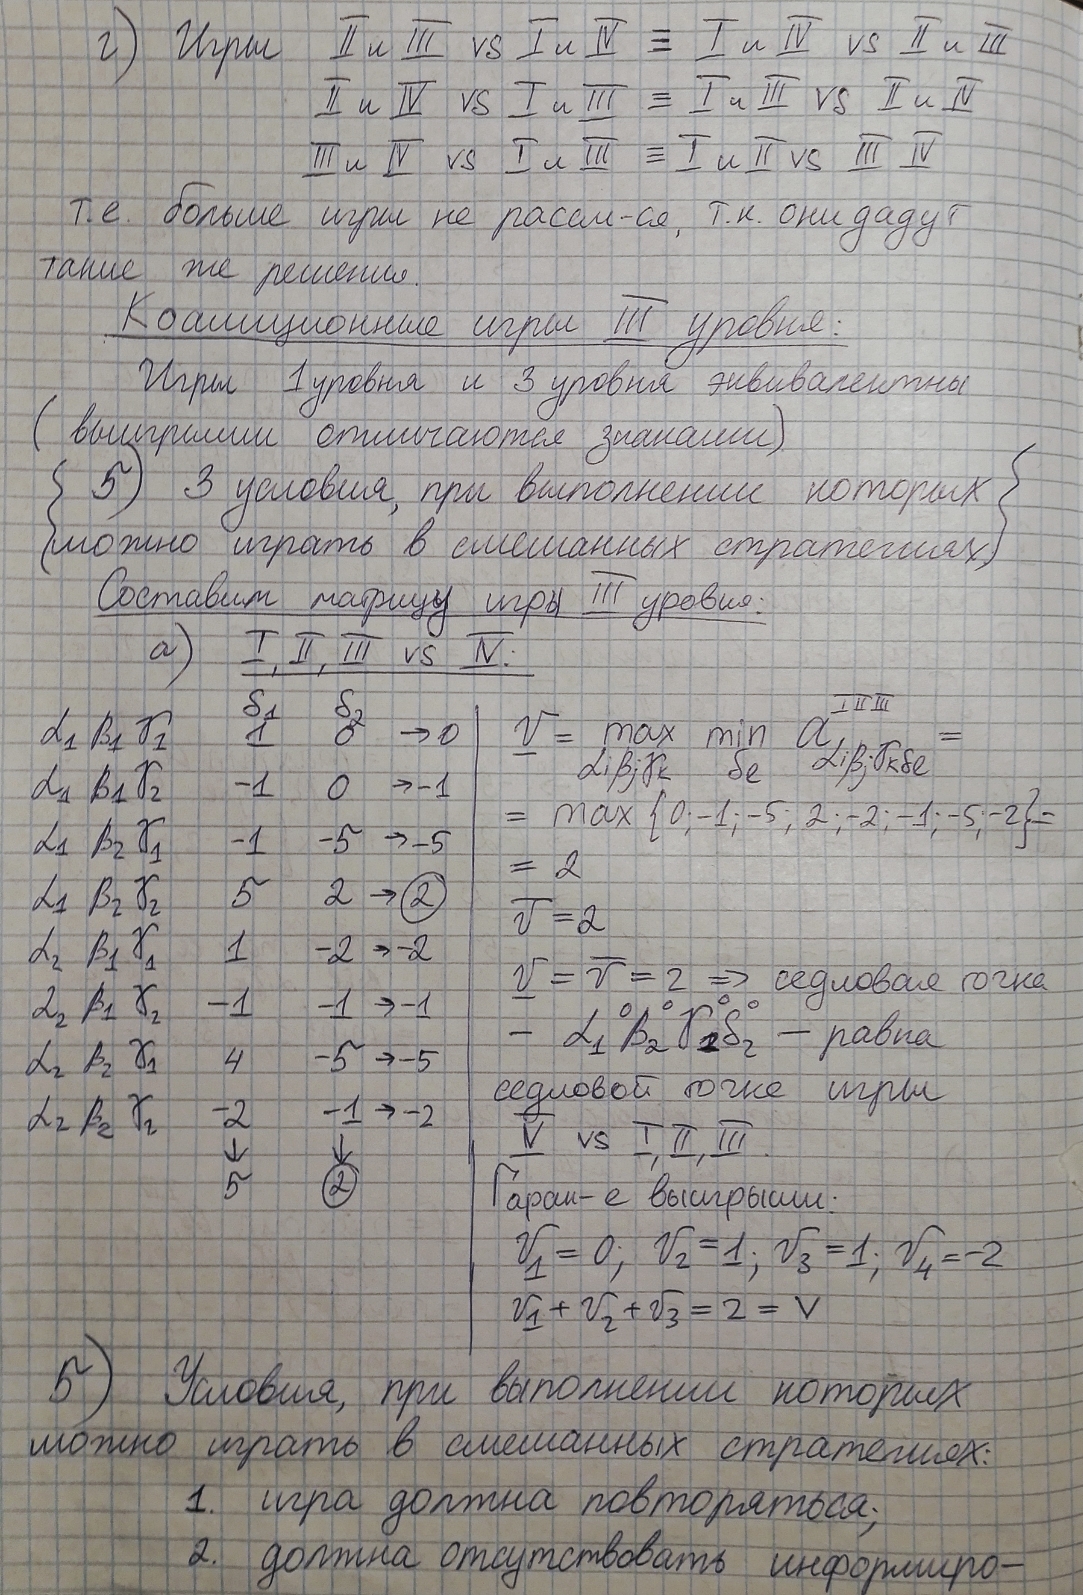 г) Игры II и III vs I и IV ≡ I и IV vs II и III
II и IV vs I и III ≡ I и III vs II и IV
III и IV vs I и III ≡ I и II vs III IV
т.е. больше игры не рассм-ся, т.к. они дадут
такие же решения.
Коалиционные игры III уровня:
Игры 1 уровня и 3 уровня эквивалентны
(выигрыши отличаются знаками)
{ 5) 3 условия, при выполнении которых }
{ можно играть в смешанных стратегиях }
Составим матрицу игры III уровня:
а) I, II, III vs IV:
δ₁ δ₂
α₁ β₁ γ₁ 1 0 → 0
α₁ β₁ γ₂ -1 0 → -1
α₁ β₂ γ₁ -1 -5 → -5
α₁ β₂ γ₂ 5 2 → 2
α₂ β₁ γ₁ 1 -2 → -2
α₂ β₁ γ₂ -1 -1 → -1
α₂ β₂ γ₁ 4 -5 → -5
α₂ β₂ γ₂ -2 -1 → -2
↓ ↓
5 2
V = max min a I II III =
αᵢβⱼγₖ δₑ αᵢβⱼγₖδₑ
= max {0; -1; -5; 2; -2; -1; -5; -2} =
= 2
V̅ = 2
V̲ = V̅ = 2 => седловая точка
- α₁° β₂° γ₂° δ₂° – равна
седловой точке игры
IV vs I, II, III.
Гаран-е выигрыши:
V₁ = 0; V₂ = 1; V₃ = 1; V₄ = -2
V₁ + V₂ + V₃ = 2 = V
5) Условия, при выполнении которых
можно играть в смешанных стратегиях:
1. игра должна повторяться;
2. должна отсутствовать информиро-